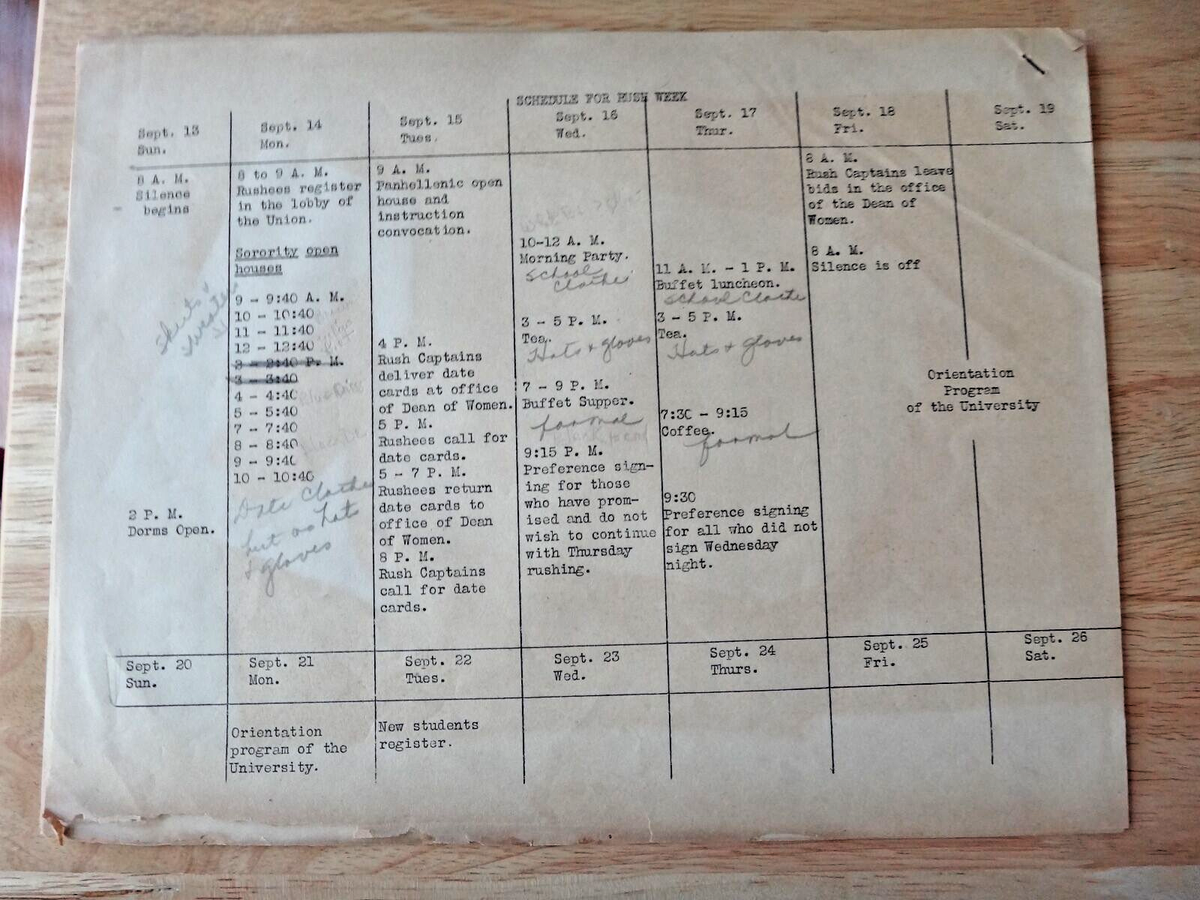 SCHEDULE FOR RUSH WEEK
Sept. 13
Sun.
8 A. M.
Silence
begins
2 P. M.
Dorms Open.
Sept. 14
Mon.
8 to 9 A. M.
Rushees register
in the lobby of
the Union.
Sorority open
houses
9 - 9:40 A. M.
10 - 10:40
11 - 11:40
12 - 12:40
2 - 2:40 P. M.
3 - 3:40
4 - 4:40
5 - 5:40
7 - 7:40
8 - 8:40
9 - 9:40
10 - 10:40
Skirts &
Sweaters
Date Clothes
but no hats
& gloves
Sept. 15
Tues.
9 A. M.
Panhellenic open
house and
instruction
convocation.
4 P. M.
Rush Captains
deliver date
cards at office
of Dean of Women.
5 P. M.
Rushees call for
date cards.
5 - 7 P. M.
Rushees return
date cards to
office of Dean
of Women.
8 P. M.
Rush Captains
call for date
cards.
Sept. 16
Wed.
10-12 A. M.
Morning Party.
School
Clothes
3 - 5 P. M.
Tea.
Hats & gloves
7 - 9 P. M.
Buffet Supper.
formal
9:15 P. M.
Preference sign-
ing for those
who have prom-
ised and do not
wish to continue
with Thursday
rushing.
Sept. 17
Thur.
11 A. M. - 1 P. M.
Buffet luncheon.
School Clothes
3 - 5 P. M.
Tea.
Hats & gloves
7:30 - 9:15
Coffee.
formal
9:30
Preference signing
for all who did not
sign Wednesday
night.
Sept. 18
Fri.
8 A. M.
Rush Captains leave
bids in the office
of the Dean of
Women.
8 A. M.
Silence is off
Sept. 19
Sat.
Orientation
Program
of the University
Sept. 20
Sun.
Sept. 21
Mon.
Orientation
program of the
University.
Sept. 22
Tues.
New students
register.
Sept. 23
Wed.
Sept. 24
Thurs.
Sept. 25
Fri.
Sept. 26
Sat.